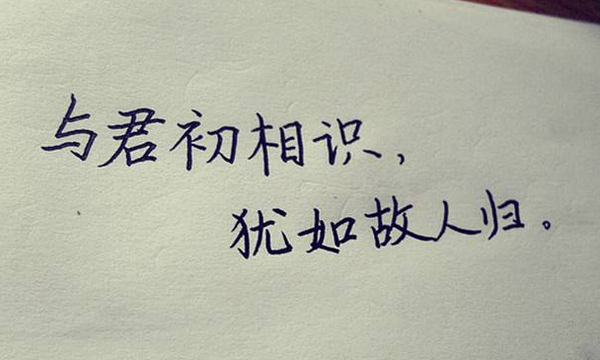 与君初相识，
犹如故人归。